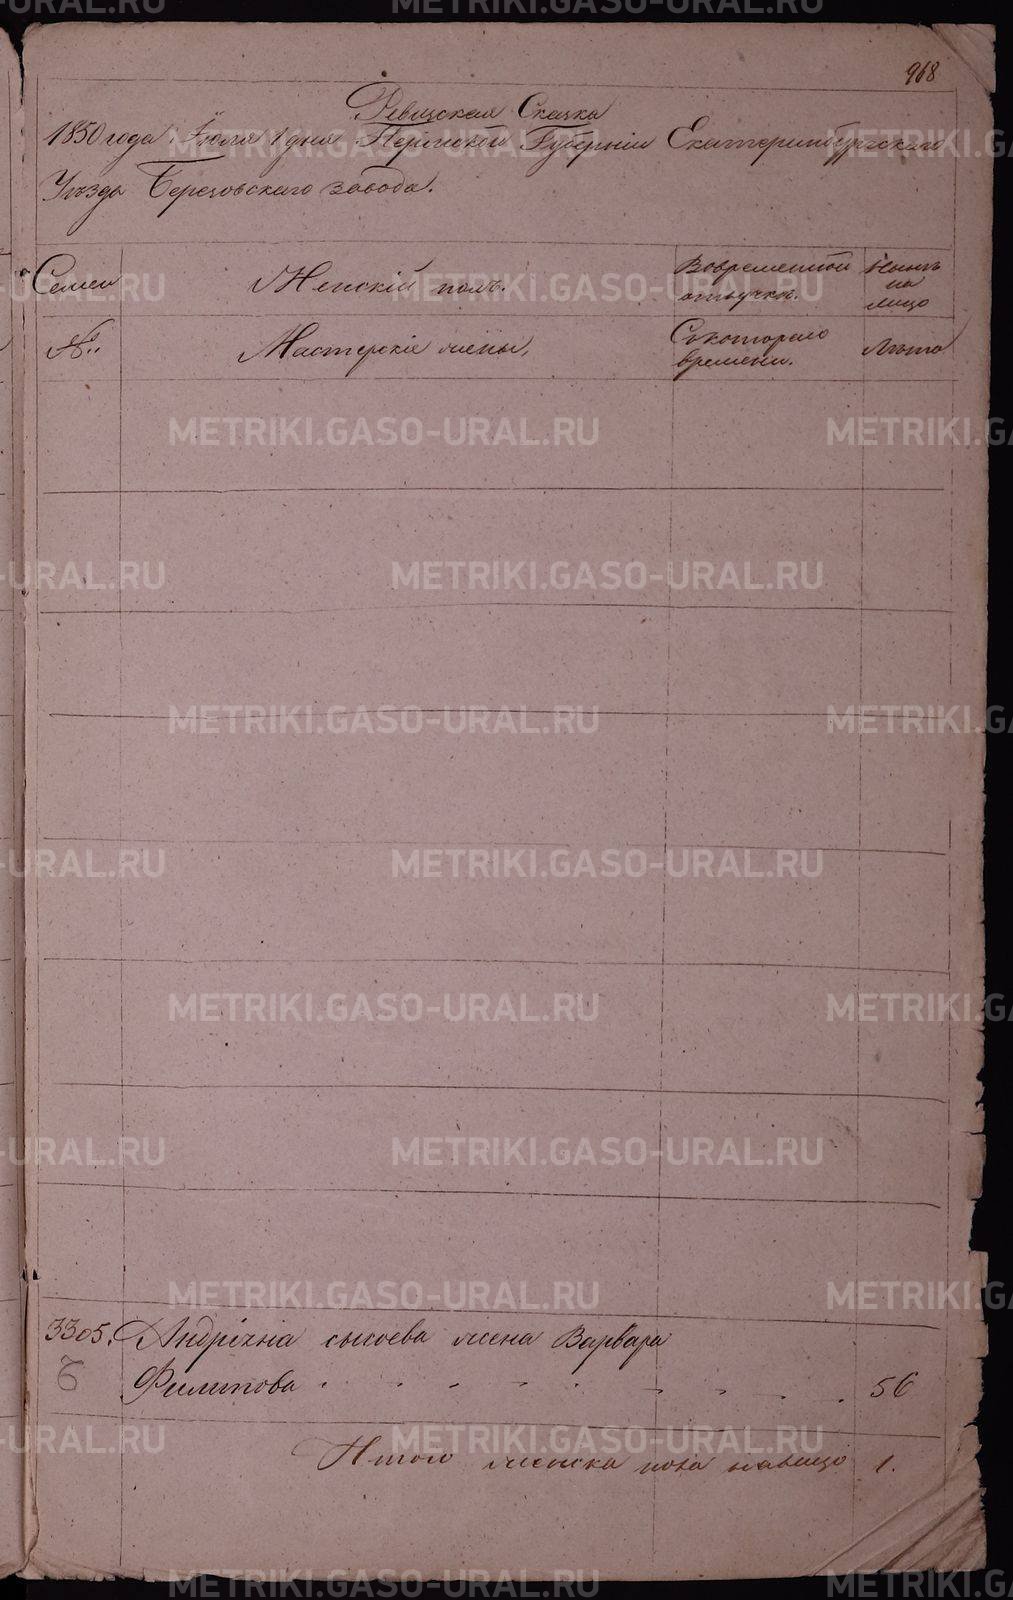 968
Ревизская Сказка
1850 года Июля 1 дня Пермской Губернии Екатеринбургского
Уезда Березовского завода.
Семеи
Женскій полъ.
Вовременной
отлучкѣ.
Нынѣ
на
лицо
№..
Мастерскіе жены,
Съкотораго
времени.
Лѣта
3305. Андрѣяна сысоева жена Варвара
Филипова
56
Итого женска пола налицо 1.
METRIKI.GASO-URAL.RU